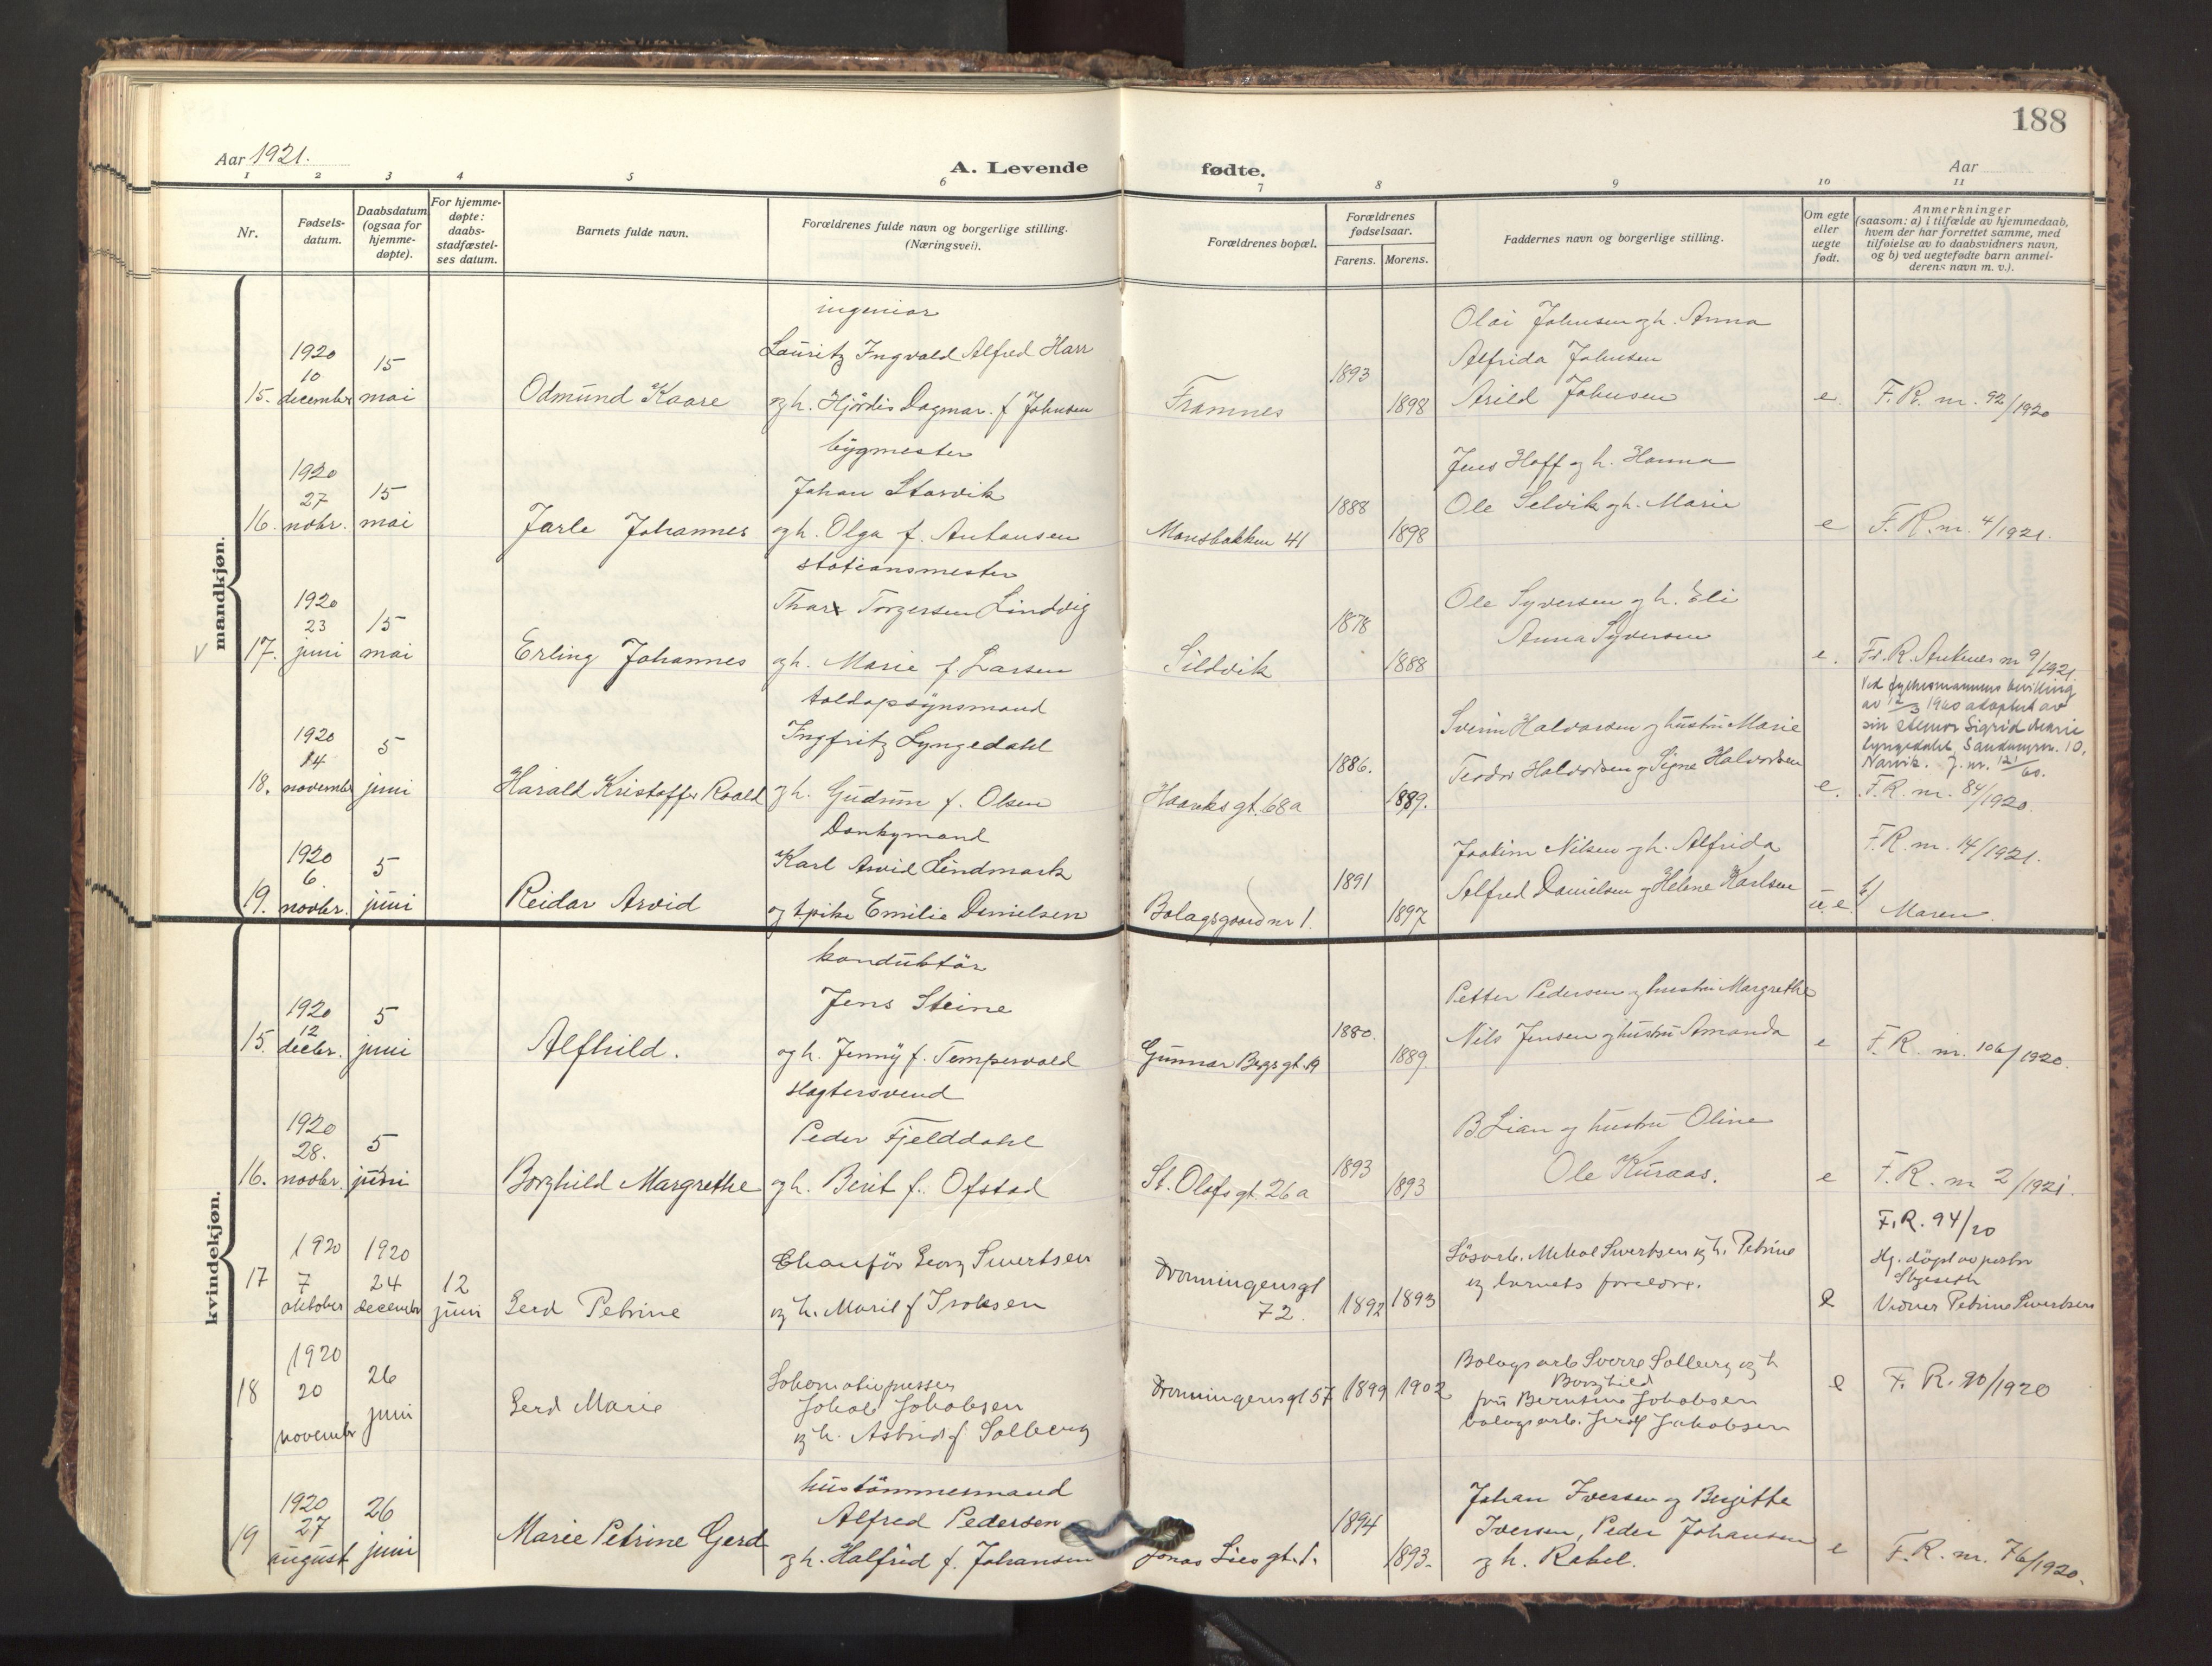 188
Aar 1921.
A. Levende fødte.
Aar
1 2 3 4 5 6 7 8 9 10 11
Nr.
Fødsels-
datum.
Daabsdatum
(ogsaa for
hjemme-
døpte).
For hjemme-
døpte:
daabs-
stadfæstel-
ses datum.
Barnets fulde navn.
Forældrenes fulde navn og borgerlige stilling.
(Næringsvei).
Forældrenes bopæl.
Forældrenes
fødselsaar.
Farens. Morens.
Faddernes navn og borgerlige stilling.
Om egte
eller
uegte
født.
Anmerkninger
(saasom: a) i tilfælde av hjemmedaab,
hvem der har forrettet samme, med
tilføielse av to daabsvidners navn,
og b) ved uegtefødte barn anmel-
derens navn m. v.).
mandkjøn.
15.
1920
10
decembr
15
mai
Odmund Kaare
ingeniør
Lauritz Ingvald Alfred Harr
og h. Hjørdis Dagmar. f Johnsen
Framnes
1893
1898
Olai Johnsen og h. Anna
Alfrida Johnsen
Arild Johnsen
e.
F. R. nr. 92/1920
16.
1920
27
nobr.
15
mai
Jarle Johannes
bygmester
Johan Storvik
og h. Olga f. Antonsen
Monsbakken 41
1888
1898
Jens Hoff og h. Hanna
Ole Selvik og h. Marie
e
F. R. nr. 4/1921.
V
17.
1920
23
juni
15
mai
Erling Johannes
stationsmester
Thor Torgersen Lindvig
og h. Marie f Larsen
Sildvik
1878
1888
Ole Syversen og h. Eli
Anna Syversen
e.
F. R. Ankenes nr 9/1921.
18.
1920
14
novembr
5
juni
Harald Kristoffer Roald
toldopsynsmand
Ingfritz Lyngedahl
og h. Gudrun f. Olsen
Haareks gt. 68a
1886.
1889.
Sverin Halvorsen og hustru Marie
Teodor Halvorsen og Signe Halvorsen
e.
Ved fylkesmannens bevilling
av 12/3 1960 adoptert av
sin stemor Sigrid Marie
Lyngedahl, 10,
Narvik. J. nr. 121/60.
F. R. nr. 84/1920.
19.
1920
6.
novbr.
5
juni
Reidar Arvid
Donkymand
Karl Arvid Lindmark
og Emilie Danielsen
Bolagsgaard nr 1.
1891
1897
Joakim Nilsen og h. Alfrida
Alfred Danielsen og Helene Karlsen
u. e.
F. R. nr. 14/1921.
Moren.
kvindekjøn.
15.
1920
12
decbr.
5
juni
Alfhild.
konduktør
Jens Steine
og h. Jenny f. Tempervold
Gunnar Bergs gt. 19
1880.
1889.
Petter Pedersen og hustru Margrethe
Nils Jensen og hustru Amanda
e
F. R. nr. 106/1920.
16.
1920
28.
novbr.
5
juni
Borghild Margrethe
slagtersvend
Peder Fjelddahl
og h. Berit f. Ofstad
St. Olafs gt. 26 a
1893
1893
B Lian og hustru Oline
Ole Kuraas.
e
F. R. nr 2/1921.
17
1920
7
oktober
1920
24
decembr
12
juni
Gerd Petrine
Chauffør Georg Sivertsen
og h. Marit f Isaksen
Dronningensgt
72.
1892
1893
Løsarb. Mikal Sivertsen og h. Petrine
og barnets foreldre.
e
F. R. 94/20
Hj. døpt av pastor
Skjeseth
Vidner Petrine Sivertsen
18
1920
20
novembr
26
juni
Gerd Marie
Lokomotivpusser
Jakob Jakobsen
og h. Astrid f. Solberg
Dronningensgt 57
1899
1902
Bolagsarb Sverre Solberg og h
Borghild
fru Berntine Jakobsen
bolagsarb. Jakobsen
e
F. R. 90/1920
19
1920
27
august
26
juni
Marie Petrine Gerd
hustømmermand
Alfred Pedersen
og h. Halfrid f. Johansen
Jonas Lies gt. 1.
1894
1893.
Johan Iversen og Bergitte
Iversen, Peder Johansen
og h. Rakel.
e
F. R. nr. 76/1920.